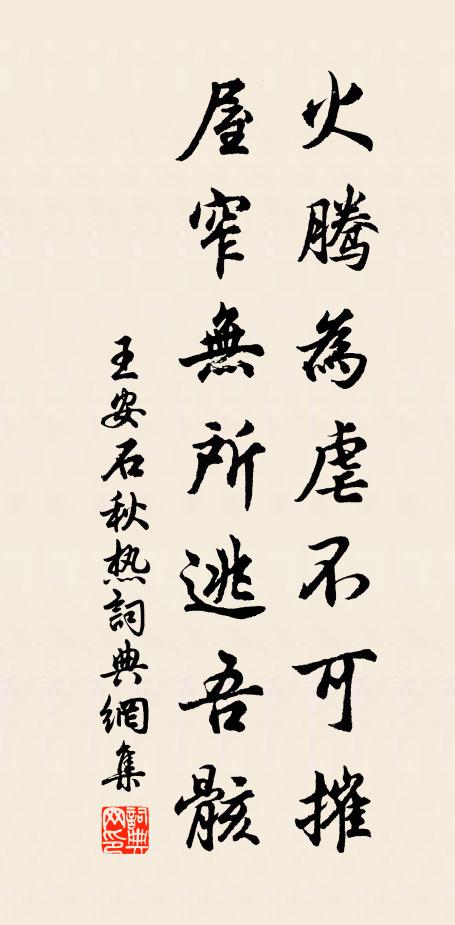 火騰為虐不可摧
屋窄無所逃吾骸
王安石秋热詞典網集
詞典網印